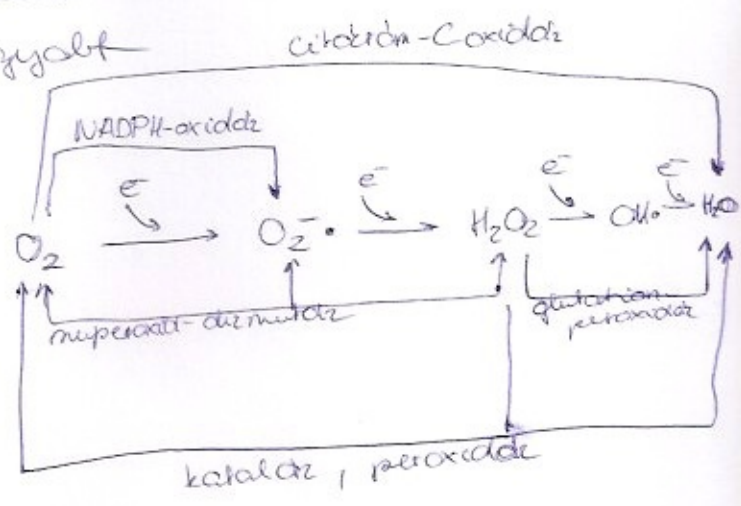 citokróm-C oxidáz
NADPH-oxidáz
e⁻ e⁻ e⁻ e⁻
O₂ → O₂⁻• → H₂O₂ → OH• → H₂O
szuperoxid-dizmutáz
glutation-
peroxidáz
kataláz, peroxidáz